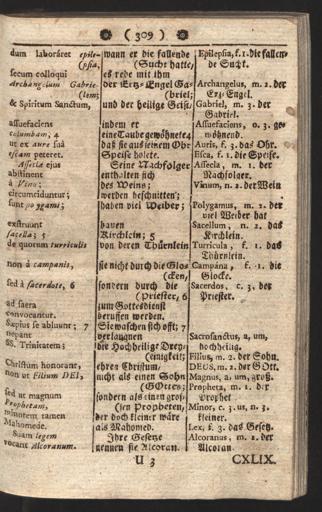 ( 309 )
dum laboráret epile-
(psia,
secum colloqui
Archangelum Gabrie-
(lem;
& Spiritum Sanctum,
assuefaciens
columbam, 4
ut ex aure suâ
escam peteret.
Asseclæ ejus
abstinent
à Vino;
circumciduntur;
sunt polygami;
exstruunt
sacella; 5
de quorum turriculis
non à campanis,
sed à sacerdote, 6
ad sacra
convocantur.
Sæpius se abluunt; 7
negant
SS. Trinitatem;
Christum honorant,
non ut Filium DEI,
sed ut magnum
Prophetam,
minorem tamen
Mahomede.
Suam legem
vocant Alcoranum.
wann er die fallende
(Sucht hatte,
es rede mit ihm
der Ertz-Engel Ga-
(briel;
und der heilige Geist,
indem er
eine Taube gewöhnete 4
daß sie aus seinem Ohr
Speise holete.
Seine Nachfolger
enthalten sich
des Weins;
werden beschnitten;
haben viel Weiber;
bauen
Kirchlein; 5
von deren Thürnlein
sie nicht durch die Glo-
(cken,
sondern durch die
(Priester, 6
zum Gottesdienst
beruffen werden.
Sie waschen sich oft; 7
verlaugnen
die Hochheilige Drey-
(einigkeit;
ehren Christum,
nicht als einen Sohn
(GOttes;
sondern als einen gros-
(sen Propheten,
der doch kleiner wäre
als Mahomed.
Ihre Gesetze
nennen sie Alcoran.
Epilepsia, f. 1. die fallen-
de Sucht.
Archangelus, m. 2. der
Ertz-Engel.
Gabriel, m. 3. der
Gabriel.
Assuefaciens, o. 3. ge-
wöhnend.
Auris, f. 3. das Ohr.
Esca, f. 1. die Speise.
Assecla, m. 1. der
Nachfolger.
Vinum, n. 2. der Wein
Polygamus, m. 2. der
viel Weiber hat
Sacellum, n. 2. das
Kirchlein.
Turricula, f. 1. das
Thürnlein.
Campána, f. 1. die
Glocke.
Sacerdos, c. 3. der
Priester.
Sacrosanctus, a, um,
hochheilig.
Filius, m. 2. der Sohn.
DEUS, m. 2. der GOtt.
Magnus, a, um, groß.
Propheta, m. 1. der
Prophet
Minor, c. 3. us, n. 3.
kleiner.
Lex, f. 3. das Gesetz.
Alcoranus, m. 2. der
Alcoran.
U 3
CXLIX.